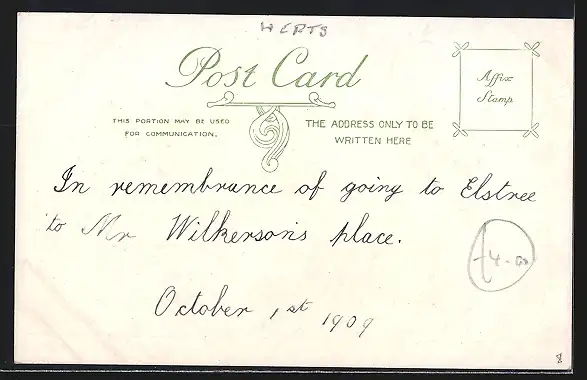 HERTS
Post Card
Affix
Stamp
THIS PORTION MAY BE USED
FOR COMMUNICATION.
THE ADDRESS ONLY TO BE
WRITTEN HERE
In remembrance of going to Elstree
to Mr Wilkerson's place.
£4-00
October 1st 1909